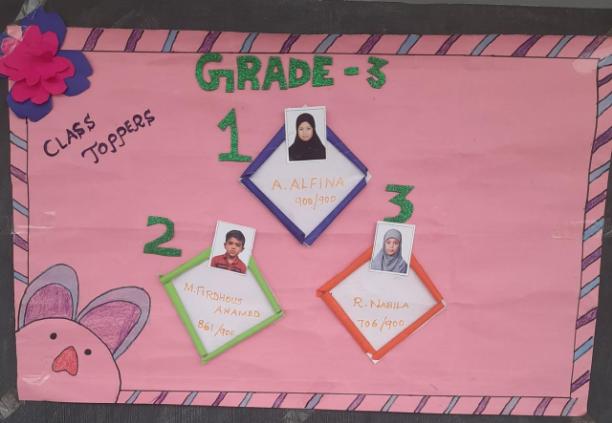 GRADE - 3
CLASS
TOPPERS
1
A. ALFINA
900/900
2
M. FIRDHOUS
AHAMED
861/900
3
R. NABILA
706/900